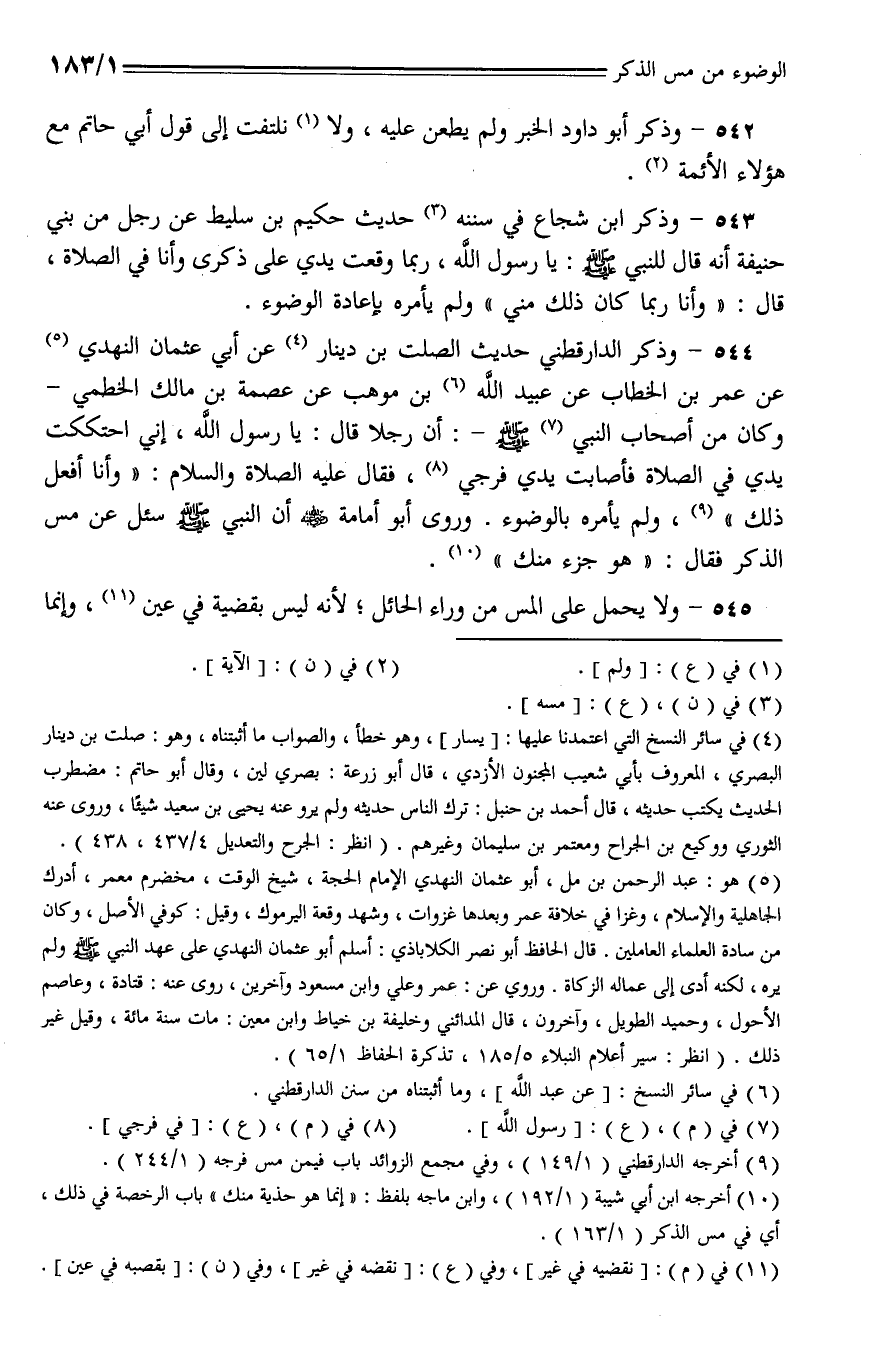 الوضوء من مس الذكر ١٨٣/١
٥٤٢ - وذكر أبو داود الخبر ولم يطعن عليه ، ولا (١) نلتفت إلى قول أبي حاتم مع
هؤلاء الأئمة (٢) .
٥٤٣ - وذكر ابن شجاع في سننه (٣) حديث حكيم بن سليط عن رجل من بني
حنيفة أنه قال للنبي ﷺ : يا رسول اللَّه ، ربما وقعت يدي على ذكرى وأنا في الصلاة ،
قال : « وأنا ربما كان ذلك مني » ولم يأمره بإعادة الوضوء .
٥٤٤ - وذكر الدارقطني حديث الصلت بن دينار (٤) عن أبي عثمان النهدي (٥)
عن عمر بن الخطاب عن عبيد اللَّه (٦) بن موهب عن عصمة بن مالك الخطمي -
وكان من أصحاب النبي (٧) ﷺ - : أن رجلا قال : يا رسول اللَّه ، إني احتككت
يدي في الصلاة فأصابت يدي فرجي (٨) ، فقال عليه الصلاة والسلام : « وأنا أفعل
ذلك » (٩) ، ولم يأمره بالوضوء . وروى أبو أمامة ﷺ أن النبي ﷺ سئل عن مس
الذكر فقال : « هو جزء منك » (١٠) .
٥٤٥ - ولا يحمل على المس من وراء الحائل ؛ لأنه ليس بقضية في عين (١١) ، وإنما
(١) في ( ع ) : [ ولم ] . (٢) في ( ن ) : [ الآية ] .
(٣) في ( ن ) ، ( ع ) : [ مسه ] .
(٤) في سائر النسخ التي اعتمدنا عليها : [ يسار ] ، وهو خطأ ، والصواب ما أثبتناه ، وهو : صلت بن دينار
البصري ، المعروف بأبي شعيب المجنون الأزدي ، قال أبو زرعة : بصري لين ، وقال أبو حاتم : مضطرب
الحديث يكتب حديثه ، قال أحمد بن حنبل : ترك الناس حديثه ولم يرو عنه يحيى بن سعيد شيئًا ، وروى عنه
الثوري ووكيع بن الجراح ومعتمر بن سليمان وغيرهم . ( انظر : الجرح والتعديل ٤٣٧/٤ ، ٤٣٨ ) .
(٥) هو : عبد الرحمن بن مل ، أبو عثمان النهدي الإمام الحجة ، شيخ الوقت ، مخضرم معمر ، أدرك
الجاهلية والإسلام ، وغزا في خلافة عمر وبعدها غزوات ، وشهد وقعة اليرموك ، وقيل : كوفي الأصل ، وكان
من سادة العلماء العاملين . قال الحافظ أبو نصر الكلاباذي : أسلم أبو عثمان النهدي على عهد النبي ﷺ ولم
يره ، لكنه أدى إلى عماله الزكاة . وروي عن : عمر وعلي وابن مسعود وآخرين ، روى عنه : قتادة ، وعاصم
الأحول ، وحميد الطويل ، وآخرون ، قال المدائني وخليفة بن خياط وابن معين : مات سنة مائة ، وقيل غير
ذلك . ( انظر : سير أعلام النبلاء ١٨٥/٥ ، تذكرة الحفاظ ٦٥/١ ) .
(٦) في سائر النسخ : [ عن عبد اللَّه ] ، وما أثبتناه من سنن الدارقطني .
(٧) في ( م ) ، ( ع ) : [ رسول اللَّه ] . (٨) في ( م ) ، ( ع ) : [ في فرجي ] .
(٩) أخرجه الدارقطني ( ١٤٩/١ ) ، وفي مجمع الزوائد باب فيمن مس فرجه ( ٢٤٤/١ ) .
(١٠) أخرجه ابن أبي شيبة ( ١٩٢/١ ) ، وابن ماجه بلفظ : « إنما هو حذية منك » باب الرخصة في ذلك ،
أي في مس الذكر ( ١٦٣/١ ) .
(١١) في ( م ) : [ نقضيه في غير ] ، وفي ( ع ) : [ نقضه في غير ] ، وفي ( ن ) : [ بقصبه في عين ] .